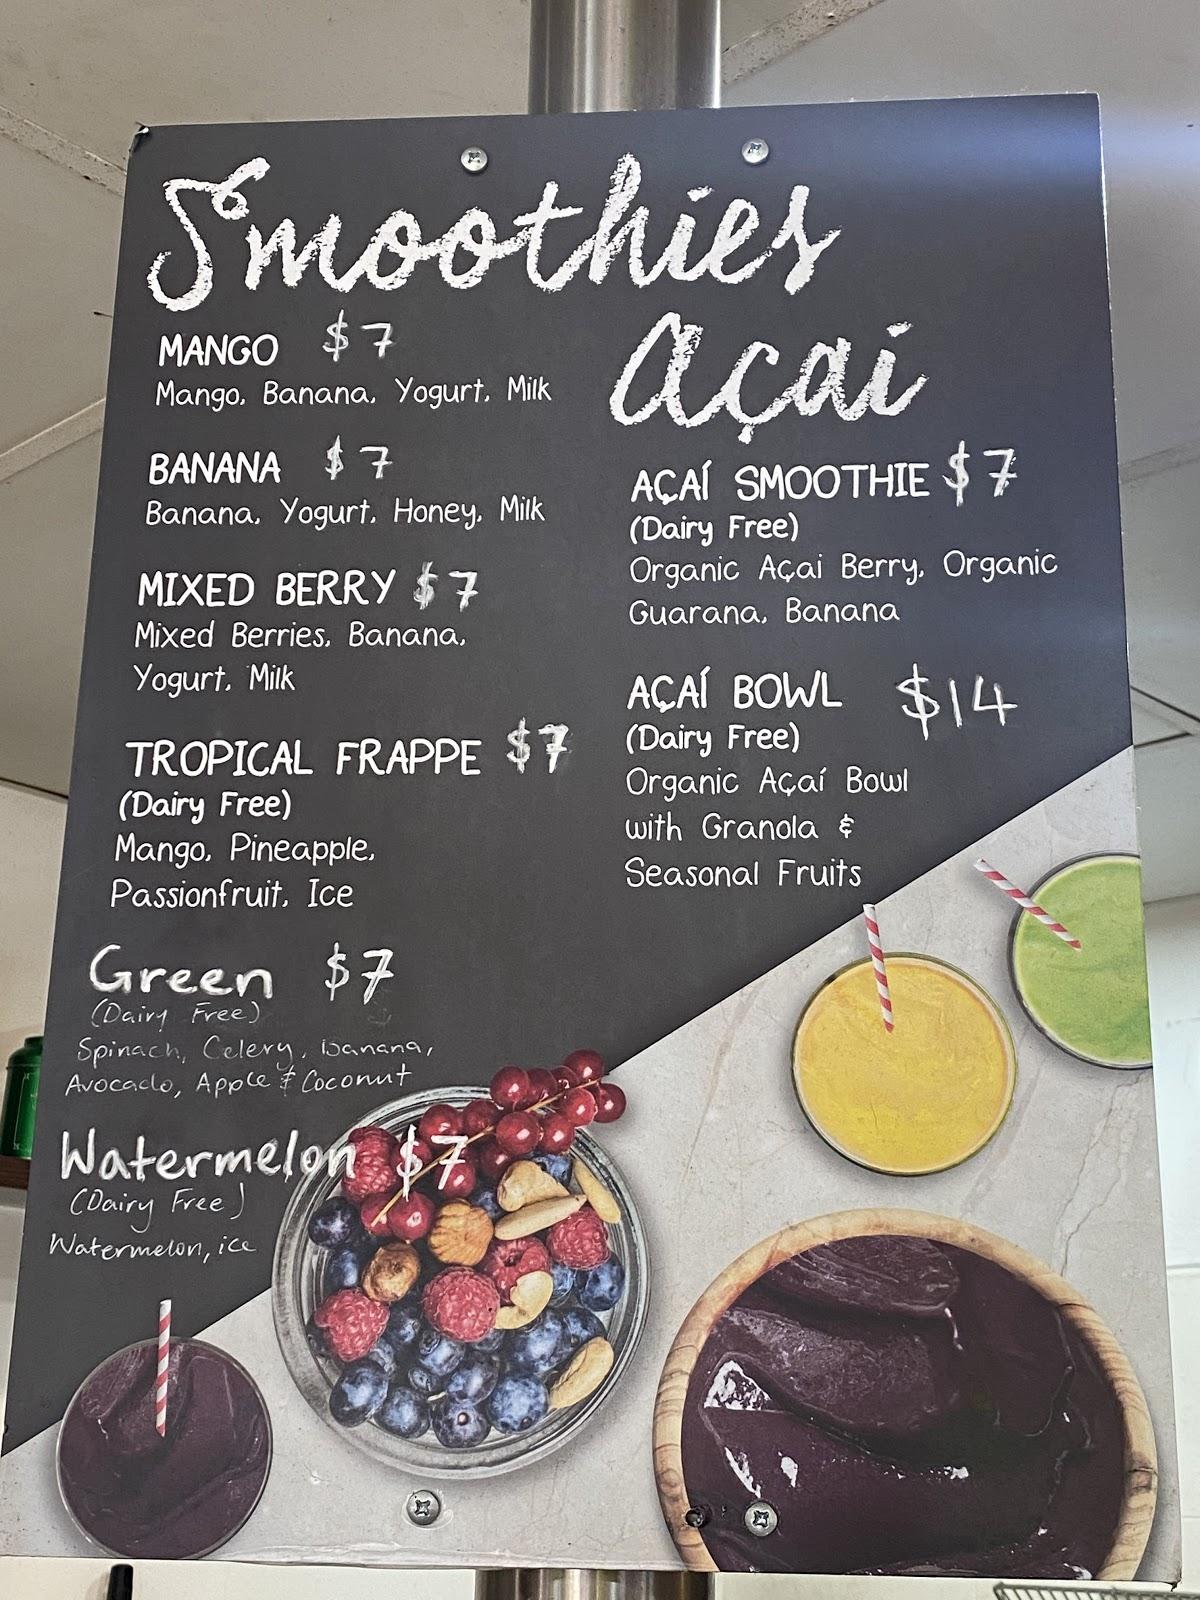 Smoothies
MANGO $7
Mango, Banana, Yogurt, Milk
BANANA $7
Banana, Yogurt, Honey, Milk
MIXED BERRY $7
Mixed Berries, Banana,
Yogurt, Milk
TROPICAL FRAPPE $7
(Dairy Free)
Mango, Pineapple,
Passionfruit, Ice
Green $7
(Dairy Free)
Spinach, Celery, Banana,
Avocado, Apple & Coconut
Watermelon $7
(Dairy Free)
Watermelon, ice
Açai
AÇAÍ SMOOTHIE $7
(Dairy Free)
Organic Açai Berry, Organic
Guarana, Banana
AÇAÍ BOWL $14
(Dairy Free)
Organic Açaí Bowl
with Granola &
Seasonal Fruits